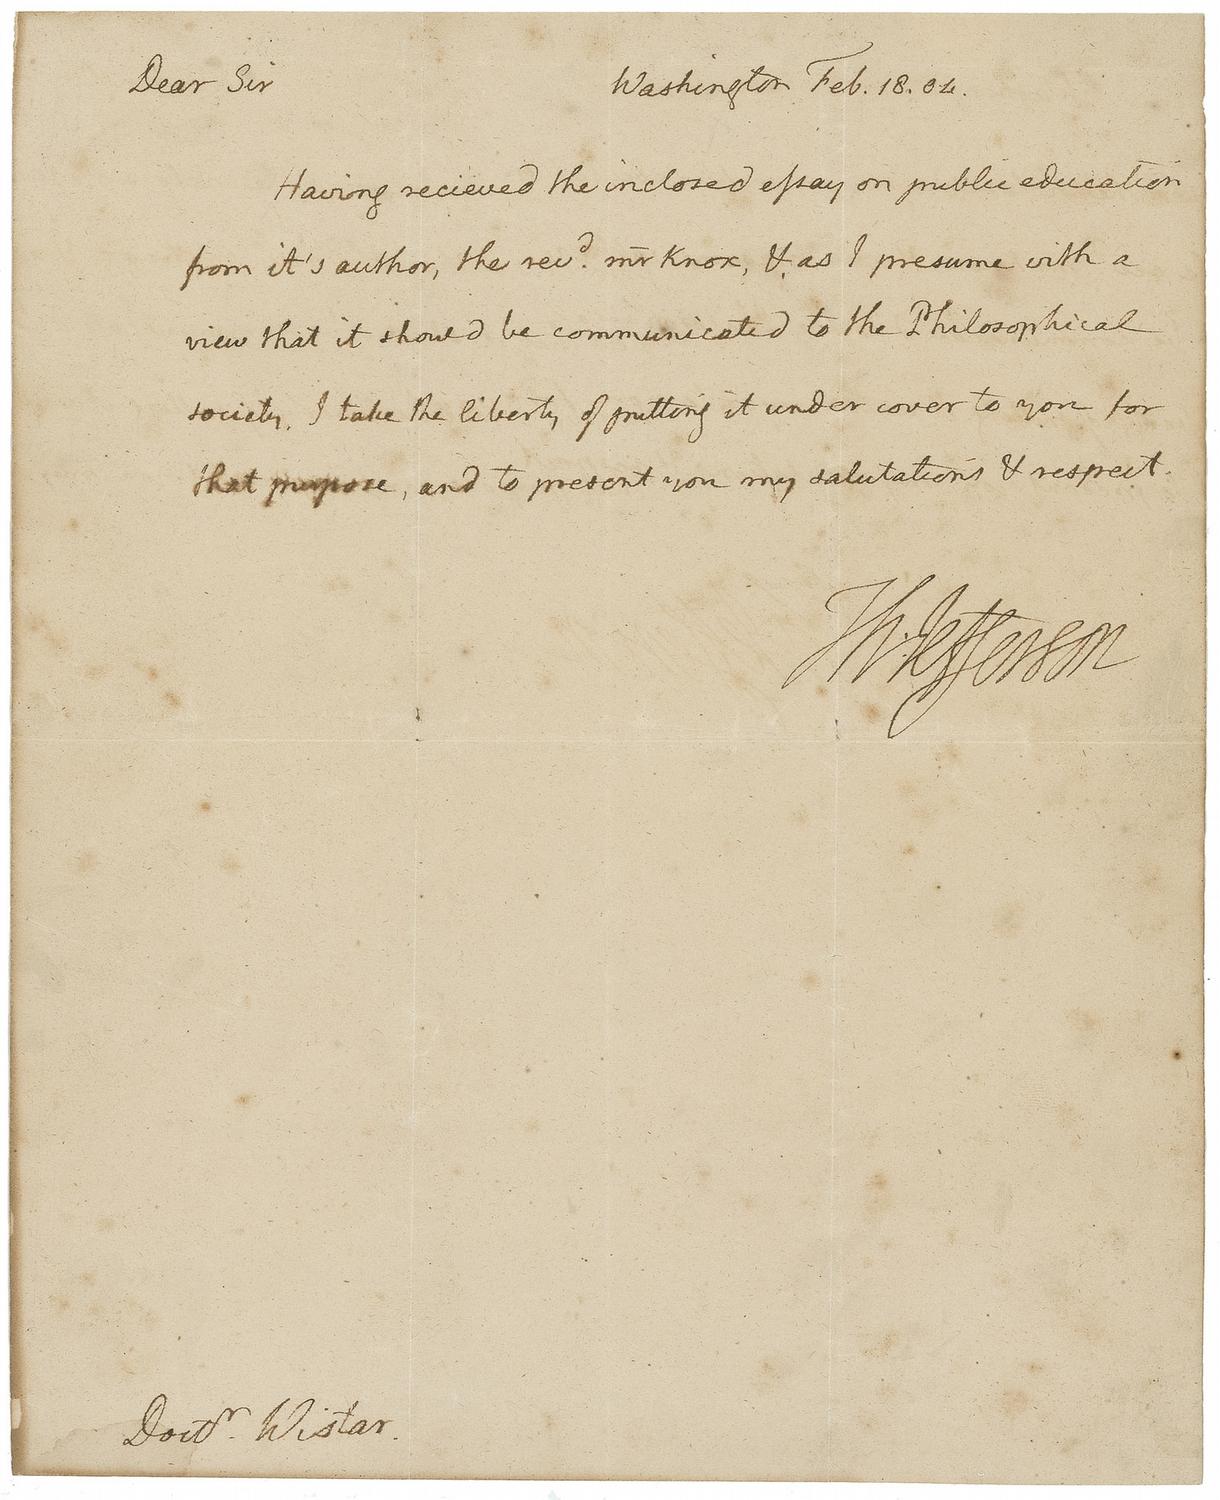 Dear Sir Washington Feb. 18. 04.
Having recieved the inclosed essay on public education
from it's author, the revd. mr Knox, & as I presume with a
view that it should be communicated to the Philosophical
society, I take the liberty of putting it under cover to you for
that purpose, and to present you my salutations & respect.
Th: Jefferson
Doctr. Wistar.